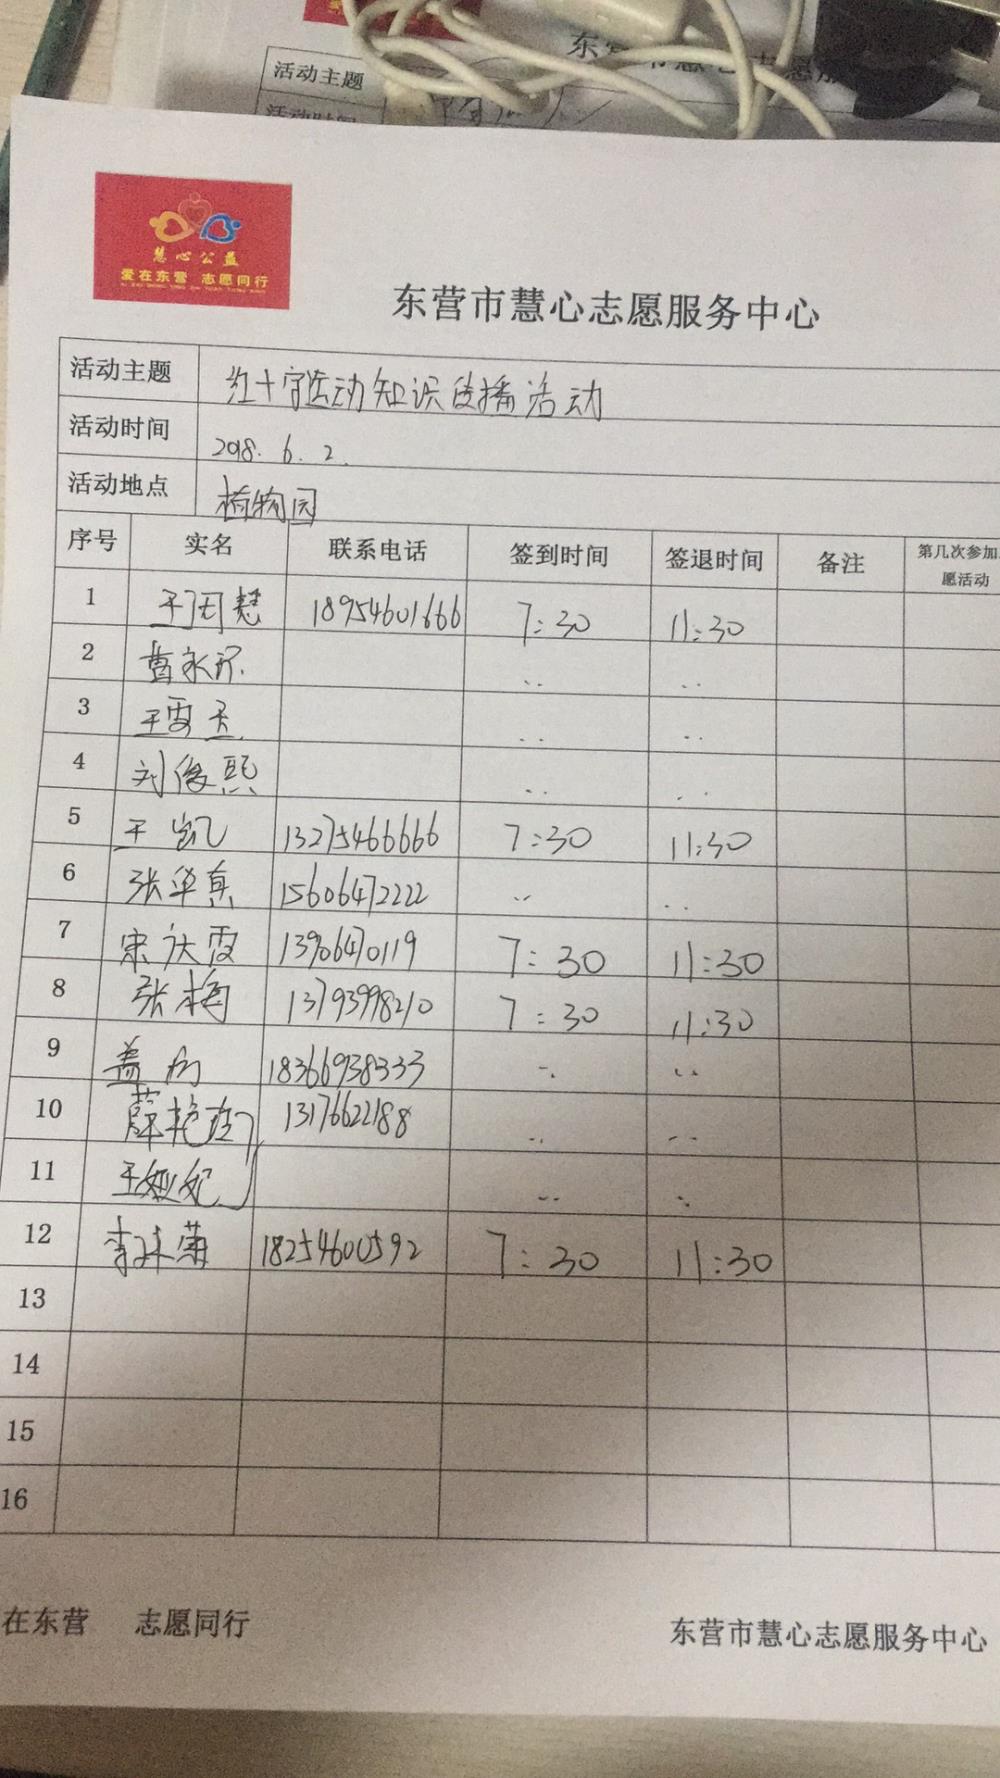 活动主题
东营市慧心志愿服
活动时间
慧心公益
爱在东营 志愿同行
东营市慧心志愿服务中心
活动主题 红十字运动知识传播活动
活动时间 2018.6.2.
活动地点 植物园
序号 实名 联系电话 签到时间 签退时间 备注 第几次参加
愿活动
1 慧 18954601666 7:30 11:30
2 ‥ ‥
3 王雪 ‥ ‥
4 刘俊熙 ‥ ‥
5 王凯 13275466666 7:30 11:30
6 张华真 15606472222 ‥ ‥
7 宋庆霞 13906470119 7:30 11:30
8 张梅 13793998210 7:30 11:30
9 盖 18366938333 ‥ ‥
10 薛艳玲 13176622188 ‥ ‥
11 王 妃 ‥ ‥
12 李 18254600592 7:30 11:30
13
14
15
16
在东营 志愿同行 东营市慧心志愿服务中心